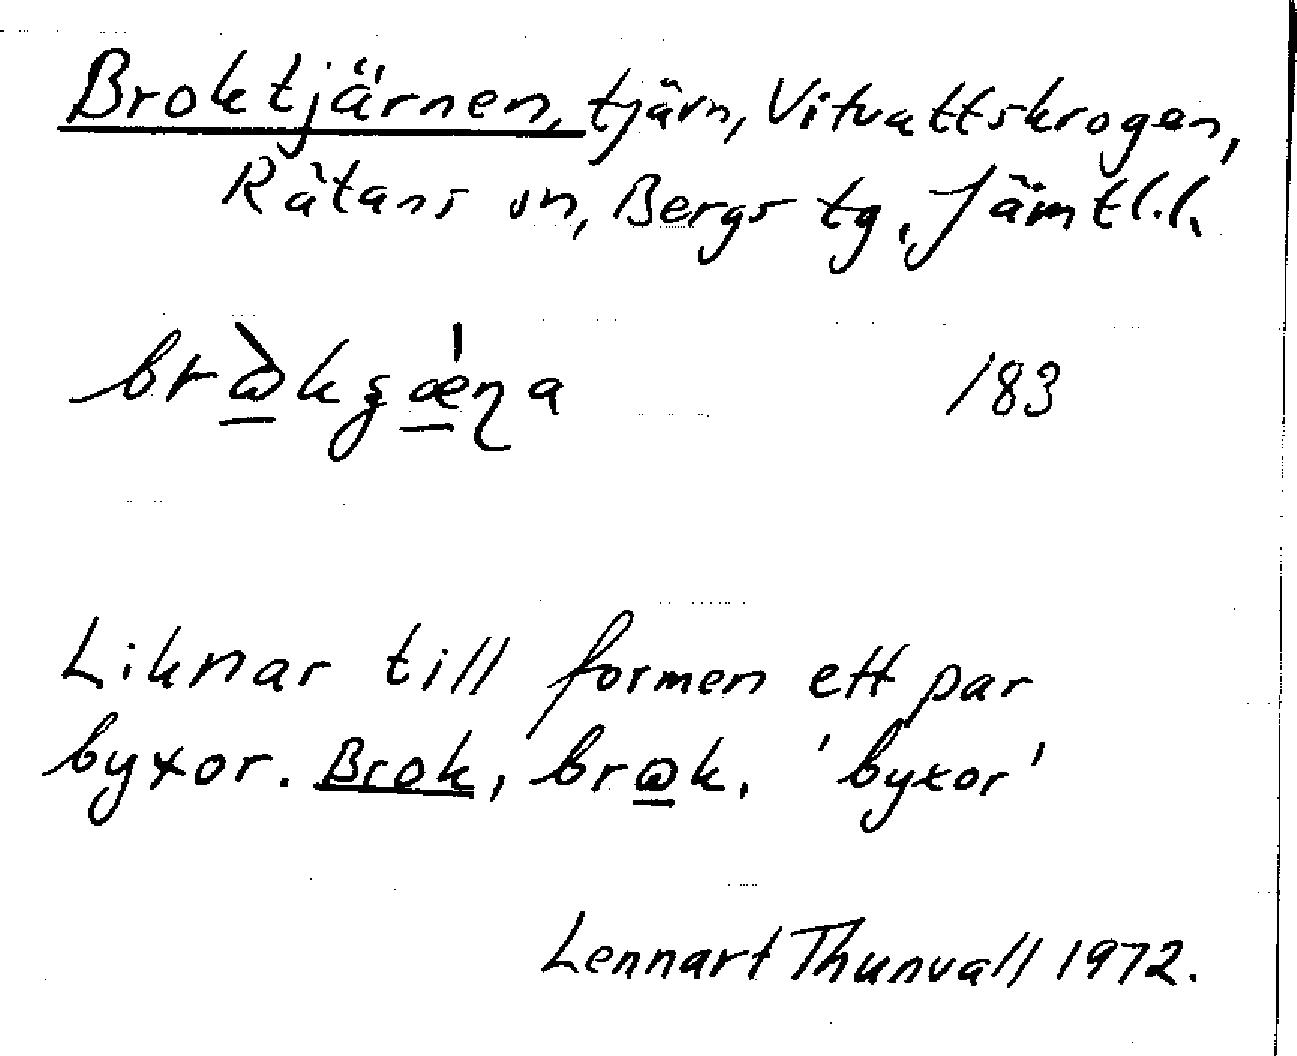 Broktjärnen, tjärn, Vitvattskrogen,
Rätans sn, Bergs tg, Jämtl.l.
183
Liknar till formen ett par
byxor. Brok, brωk. 'byxor'
Lennart Thunvall 1972.